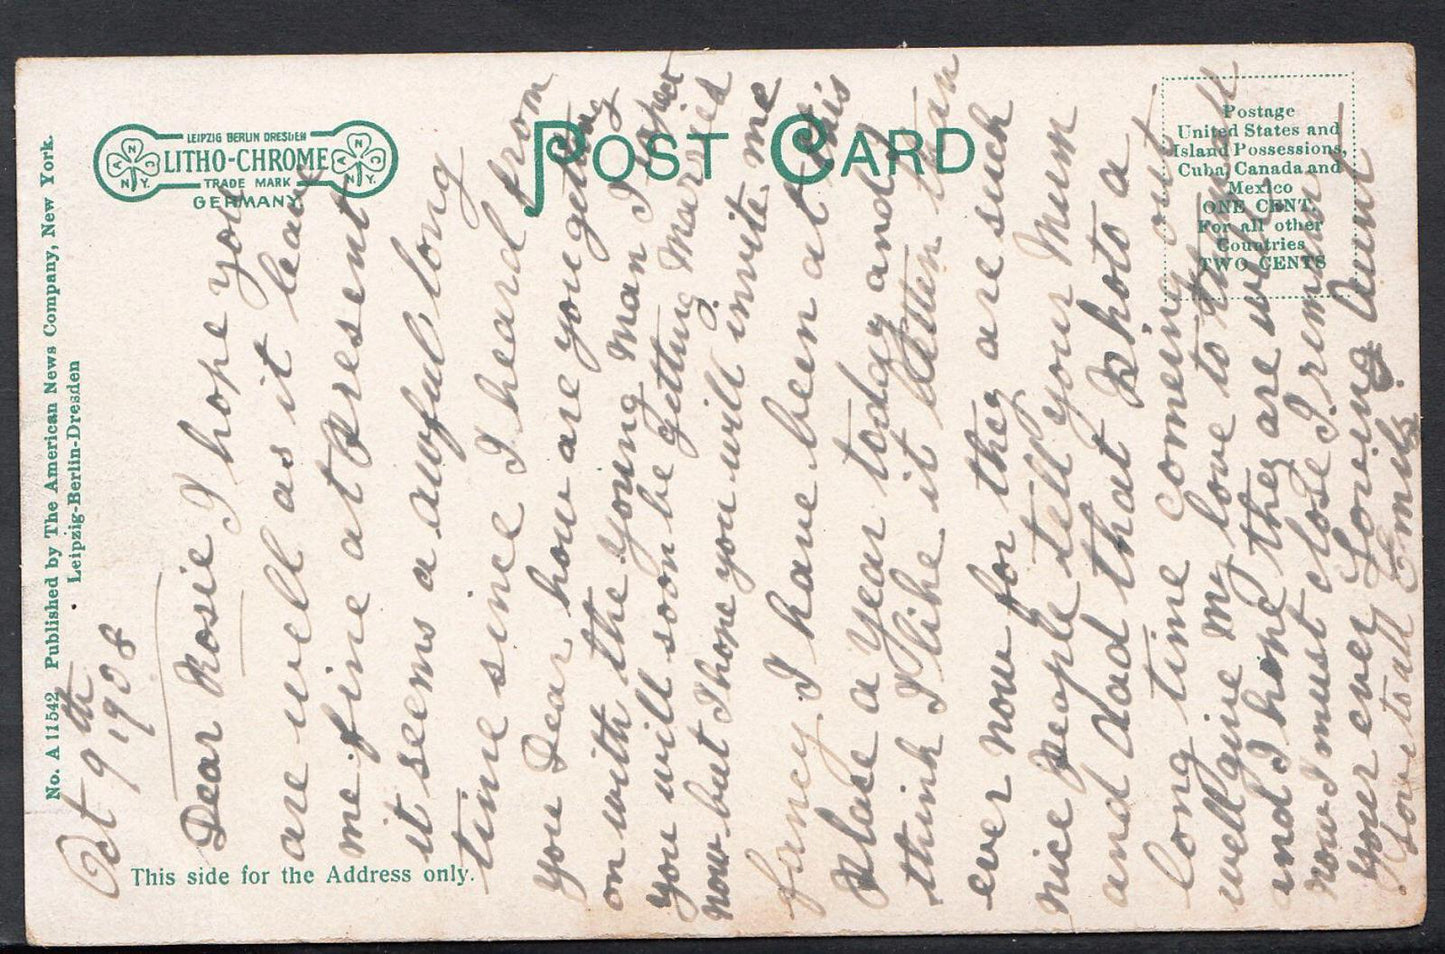 No. A 11542 Published by The American News Company, New York.
Leipzig-Berlin-Dresden
LEIPZIG BERLIN DRESDEN
LITHO-CHROME
TRADE MARK
GERMANY
A N C N.Y.
A N C N.Y.
POST CARD
Postage
United States and
Island Possessions,
Cuba, Canada and
Mexico
ONE CENT.
For all other
Countries
TWO CENTS
This side for the Address only.
Oct 9th 1908
Dear Rosie I hope you
are well as it leave
me fine at Present
it seems a awful long
time since I heard from
you Dear how are you getting
on with the Young Man I expect
you will soon be getting Married
now but I hope you will invite me
fancy I have been at this
Place a year today and I
think I like it better than
ever now for they are such
nice people tell your Mum
and Dad that Photo a
long time comeing out
well give my love to them all
and I hope they are well
now I must close I remain
your ever Loving Aunt
Love to all Emily